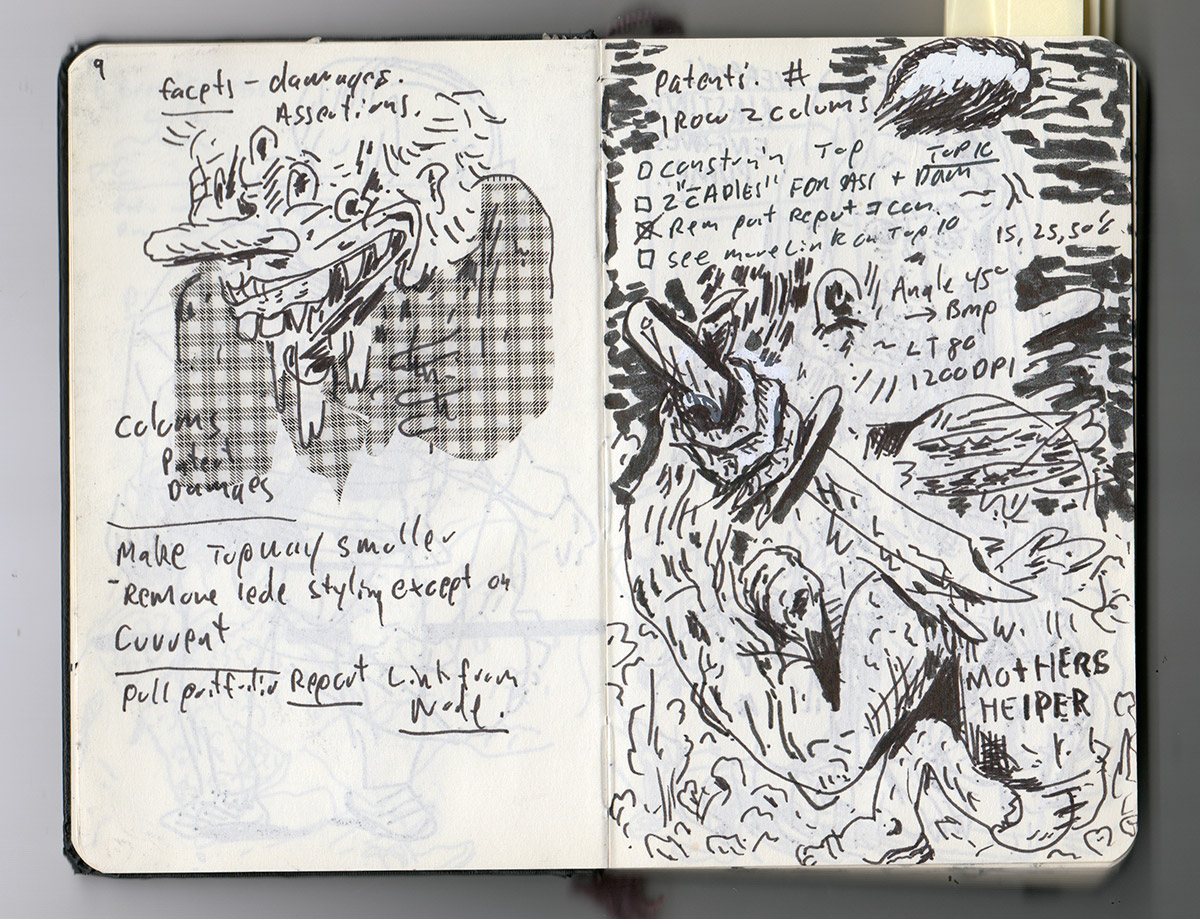 9
facets - damages.
Assertions.
Colums
Patent
Damages
Make Topway smaller
-Remove lede styling except on
Current
pull portfolio Report Link from
Node.
Patents #
1 Row 2 colums
constrain Top Top 10
2 "TABLES" FOR ASS + DAM
Rem port Report Icon
see more Link on Top 10
15, 25, 50%
Angle 45°
→ Bmp
~ LT 80
1200 DPI
MOTHERS
HElPER